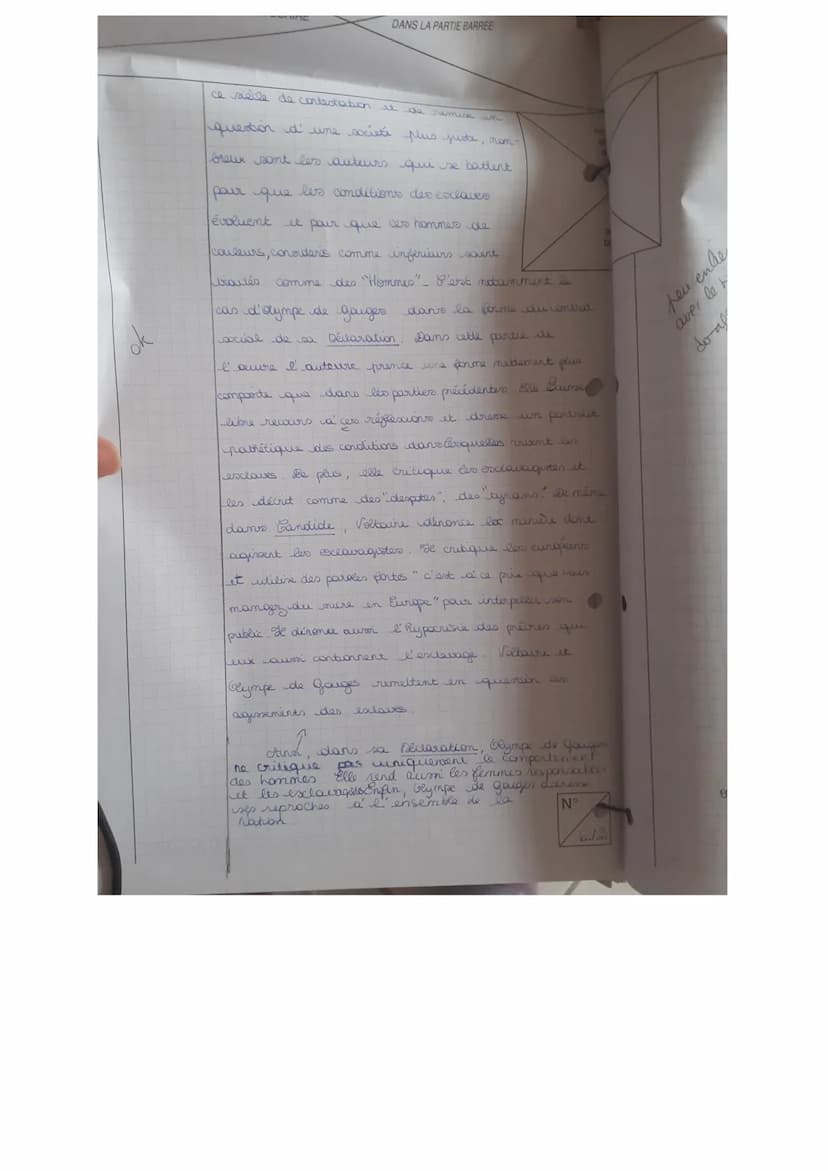 DANS LA PARTIE BARRÉE
ce siècle de contestation et de remise en
question d'une société plus juste, nom-
breux sont les auteurs qui se battent
pour que les conditions des esclaves
évoluent et pour que ces hommes de
couleurs, considérés comme inférieurs soient
traités comme des "Hommes". C'est notamment le
cas d'Olympe de Gouges dans la forme du contrat
social de sa Déclaration. Dans cette partie de
l'œuvre l'auteure prence une forme nettement plus
comporte que dans les parties précédentes. Elle laisse
libre recours à ces réflexions et dresse un portrait
pathétique des conditions dans lesquelles vivent les
esclaves. De plus, elle critique les esclavagistes et
les décrit comme des "despotes", des "tyrans". De même
dans Candide, Voltaire dénonce la manière dont
agissent les esclavagistes. Il critique les européens
et utilise des paroles fortes "c'est à ce prix que vous
mangez du sucre en Europe" pour interpeller son
public. Il dénonce aussi l'hypocrisie des prêtres qui
eux aussi cautionnent l'esclavage. Voltaire et
Olympe de Gouges remettent en question les
agissements des esclaves.
Ainsi, dans sa Déclaration, Olympe de Gouges
ne critique pas uniquement le comportement
des hommes. Elle rend aussi les femmes responsables
et les esclavagistes. Enfin, Olympe de Gouges adresse
ses reproches à l'ensemble de la
nation
ok
peu
avec le
N°